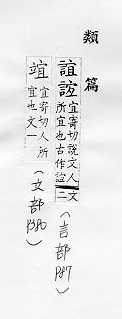 類篇
誼 宜寄切說文人
所宜也古作 文二
（言部 P87）
竩 宜寄切人所
宜也文一
（立部 P380）